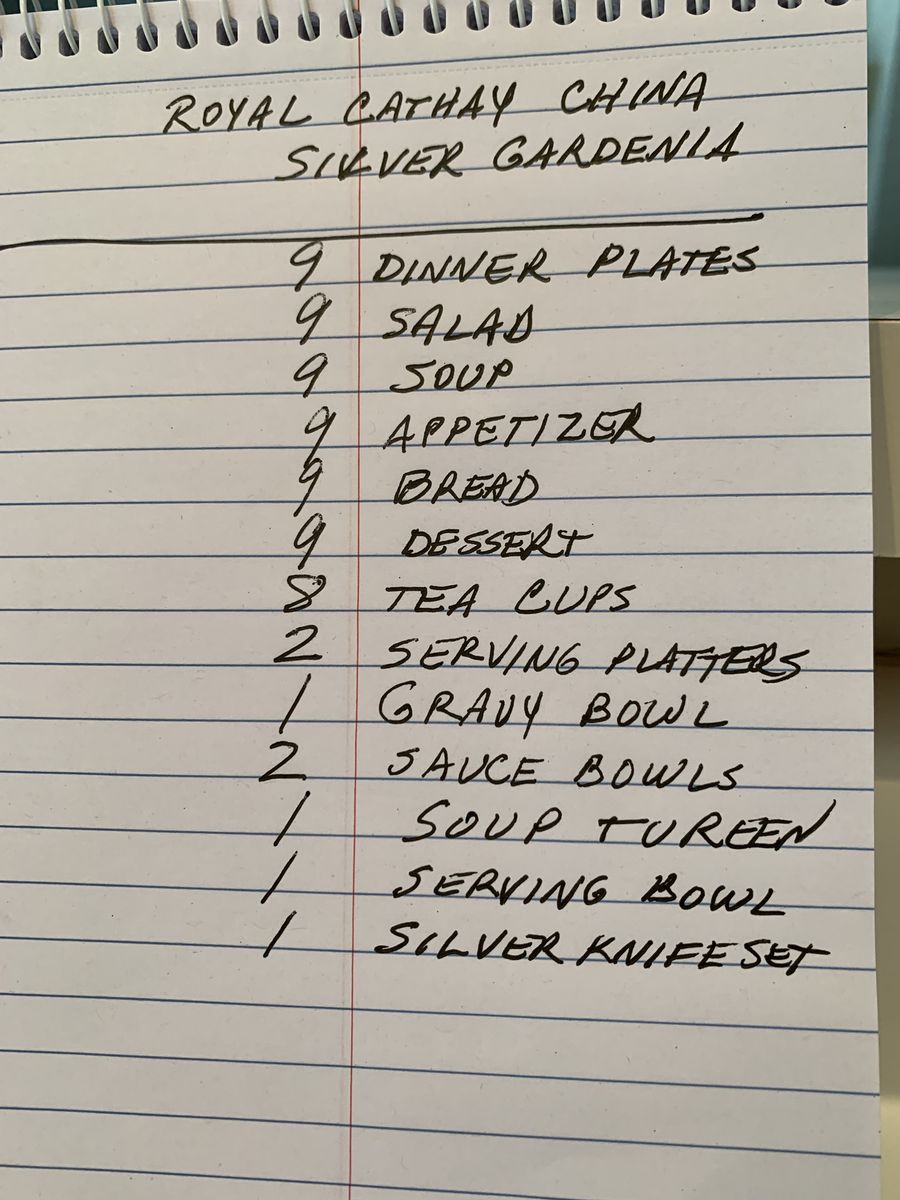 ROYAL CATHAY CHINA
SILVER GARDENIA
9 DINNER PLATES
9 SALAD
9 SOUP
9 APPETIZER
9 BREAD
9 DESSERT
8 TEA CUPS
2 SERVING PLATTERS
1 GRAVY BOWL
2 SAUCE BOWLS
1 SOUP TUREEN
1 SERVING BOWL
1 SILVER KNIFE SET